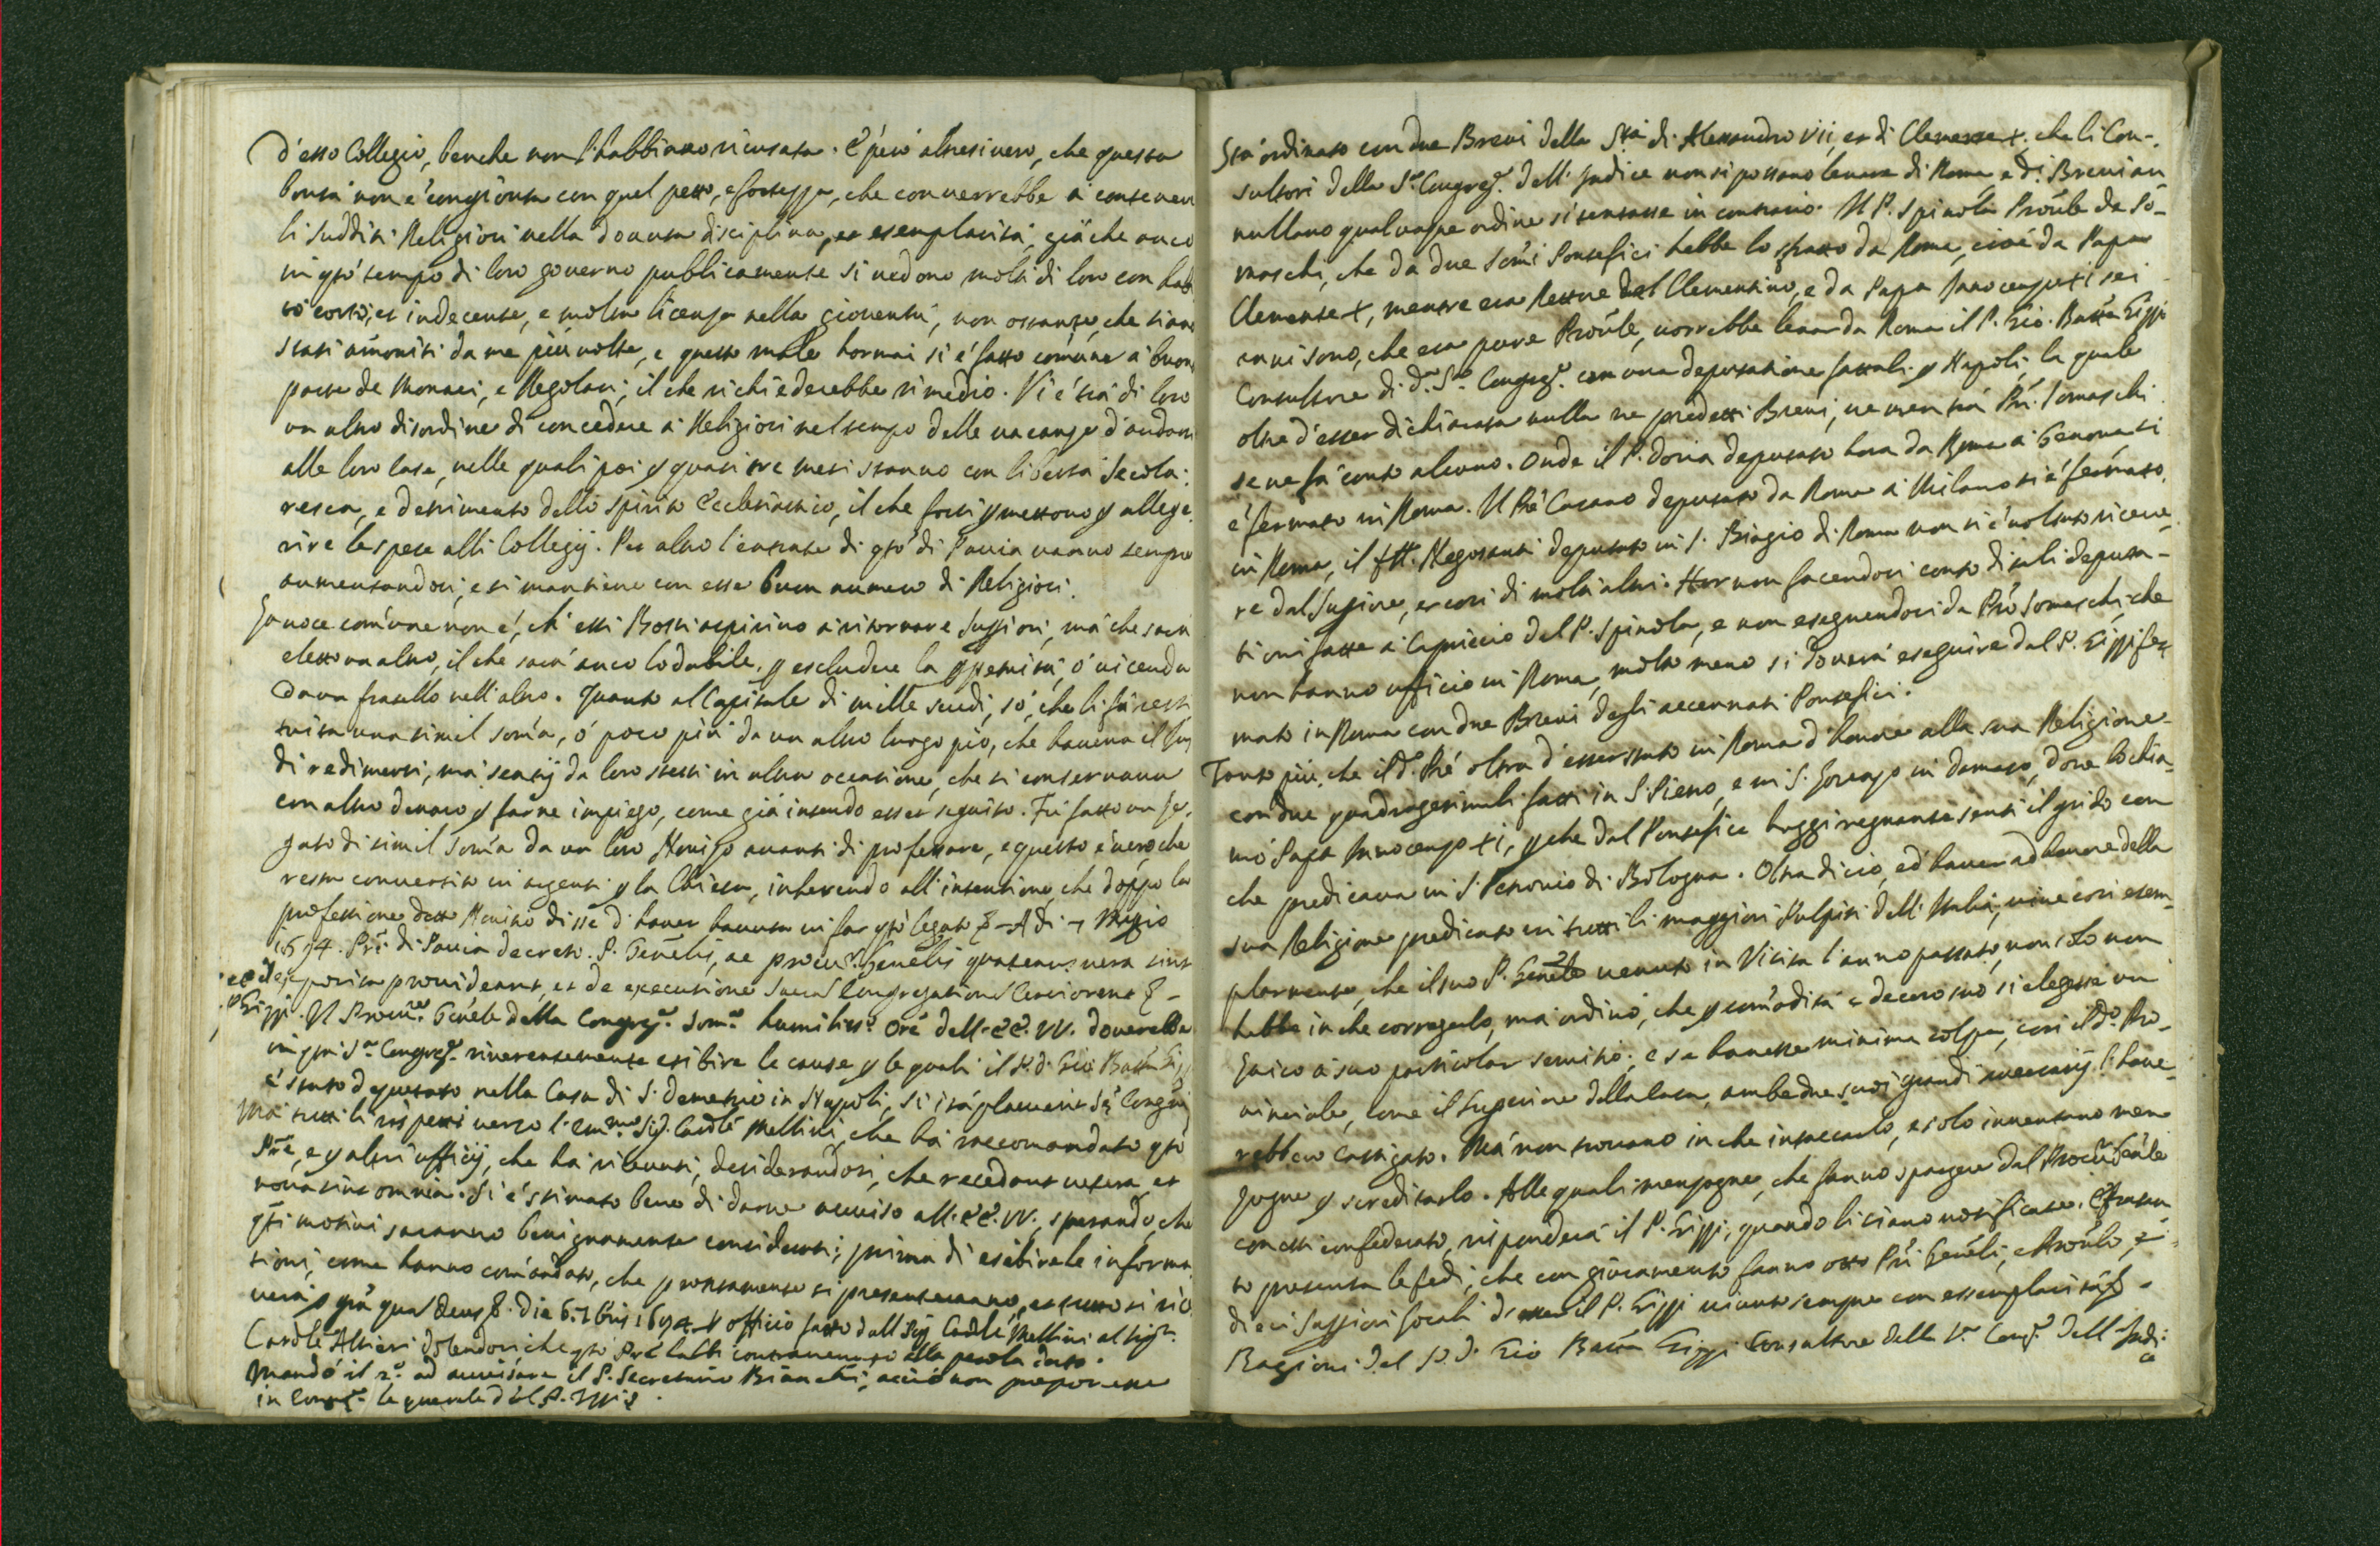 d'esso Collegio, benche non l'habbiano ricusata. È però altresi vero, che questa
bontà non è congionta con quel petto, e fortezza, che converrebbe à contener
li sudditi Religiosi nella dovuta disciplina, et esemplarità, già che anco
in qto tempo di loro governo pubblicamente si vedono molti di loro con habi
to corto, et indecente, e molta licenza nella gioventù, non ostante, che siano
stati amoniti da me più volte, e questo male hormai si è fatto comune à buona
parte de Monaci, e Regolari; il che richiederebbe rimedio. Vi è trà di loro
un altro disordine di concedere à Religiosi nel tempo delle vacanze d'andare
alle loro case, nelle quali poi p quasi tre mesi stanno con libertà secola:
resca, e detrimento dello spirito Ecclesiastico, il che forsi pmettono p allege
rire le spese alli Collegij. Per altro l'entrate di qto di Pavia vanno sempre
aumentandosi, e si mantiene con esse buon numero di Religiosi.
La voce comune non è, ch'essi Bossi aspirino à ritornare Supiori, mà che sarà
eletto un altro, il che sarà anco lodabile, p escludere la ppetuità, ò vicenda
da un fratello nell'altro. Quanto al Capitale di mille scudi, sò, che li fù resti
tuita una simil soma, ò poco più da un altro luogo pio, che haveva il Jus
di redimersi, mà serviti da loro stessi in altra occasione, che si conservava
con altro denaro p farne impiego, come già intendo esser seguito. Fù fatto un le
gato di simil soma da un loro Novizo avanti di professare, e questo è vero che
resta convertito in argenti p la Chiesa, inherendo all'intentione, che doppo la
professione detto Novitio disse d'haver havuta in far qto legato &. Adi 7 Maggio
1694. Pri di Pavia decreto. P. Genelis, ac procur. Genelis quatenus vera sint
exposita provideant, et de executione Sacra Congregation Certiorent &.
P Gippi. Il Procur.re Genele della Congreg.e Som.a humiliss.o Ore dell'EE. VV. doverebbe
in qta S.a Congreg.e riverentemente esibire le cause p le quali il P. D. Gio Batta Gippi
è stato deputato nella Casa di S. Demetrio in Napoli, si ità placuerit S. Congni
Mà tutti li rispetti verso l'Em.mo Sig. Cardle Mellini, che hà raccomandato qto
Pre, e p altri ufficij, che hà ricevuti, desiderandosi, che recedant vetera, et
nova sint omnia. Si è stimato bene di darne avviso all'EE. VV., sperando, che
qti motivi saranno benignamente considerati; prima di esibirele informa
tioni, come hanno comandato, che prontamente si presenteranno, et tutto si rice
verà p gra qua Deus &. Die 6. 7bris 1694. P officio fatto dall Sig. Cardle Mellini al Sig.r
Cardle Altieri dolendosi, che qto Pre habbi contravenuto alla parola data.
Mandò il 2.o ad avvisare il P. Secretario Bianchi, acciò non proponesse
in Congr.e le querele del P. Gippi &.
Stà ordinato con due Brevi della S.tà di Alessandro VII, et di Clemente X, che li Con-
sultori della S.a Congreg.e dell'Indice non si possano levare di Roma, e d.i Brevi an
nullano qualunque ordine si tentasse in contrario. Il P. Spinola Proule de So-
maschi, che da due Somi Pontefici hebbe lo sfratto da Roma, cioè da Papa
Clemente X, mentre era Rettore del Clementino, e da Papa Innocenzo XI sei
anni sono, che era pure Proule, vorrebbe levar da Roma il P. Gio. Batta Gippi
Consultore di d.a S.a Congreg.e con una deputatione fattali p Napoli, la quale
oltre d'esser dichiarata nulla ne predetti Brevi, ne men trà Pri Somaschi
se ne fà conto alcuno. Onde il P. Doria deputato hora da Roma à Genova si
è fermato in Roma. Il Pre Casano deputato da Roma à Milano si è fermato
in Roma, il frll. Negossanti deputato in S. Biagio di Roma non si è voluto riceve
re dal Supiore, et così di molti altri. Hor non facendosi conto di tali deputa-
tioni fatte à Capriccio dal P. Spinola, e non eseguendosi da Pri Somaschi, che
non hanno ufficio in Roma, molto meno si doverà eseguire dal P. Gippi fer
mato in Roma con due Brevi degli accennati Pontefici.
Tanto più, che il d.o Pre oltra d'esser stato in Roma d'honore alla sua Religione
con due quadragesimali fatti in S. Pietro, e in S. Lorenzo in Damaso, dove lo chia
mò Papa Innocenzo XI, p che dal Pontefice hoggi regnante sentì il grido con
che predicava in S. Petronio di Bologna. Oltra di ciò, ed'haver ad honore della
sua Religione predicato in tutti li maggiori Pulpiti dell'Italia, vive così esem
plarmente, che il suo P. Genele venuto in Visita l'anno passato, non solo non
hebbe in che correggerlo, mà ordinò, che p comodità e decoro suo si elegesse un
Laico à suo particolar servitio; e se havesse minima colpa, così il d.o Pro-
vinciale, come il Superiore della casa, ambedue suoi grandi avversarij l'have
rebbero castigato. Mà non trovano in che intaccarlo, e solo inventano men
zogne p screditarlo. Alle quali menzogne, che fanno spargere dal Procur. Genle
con essi confederato, risponderà il P. Gippi, quando li siano notificate. E frattan
to presenta le fedi, che con giuramento fanno otto Pri Geneli, e Proule, e
dieci Supiori locali d'esser il P. Gippi vivuto sempre con essemplarità &.
Ragioni del P. D. Gio Batta Gippi Consultore della S.a Cong.e dell'Indi:
ce